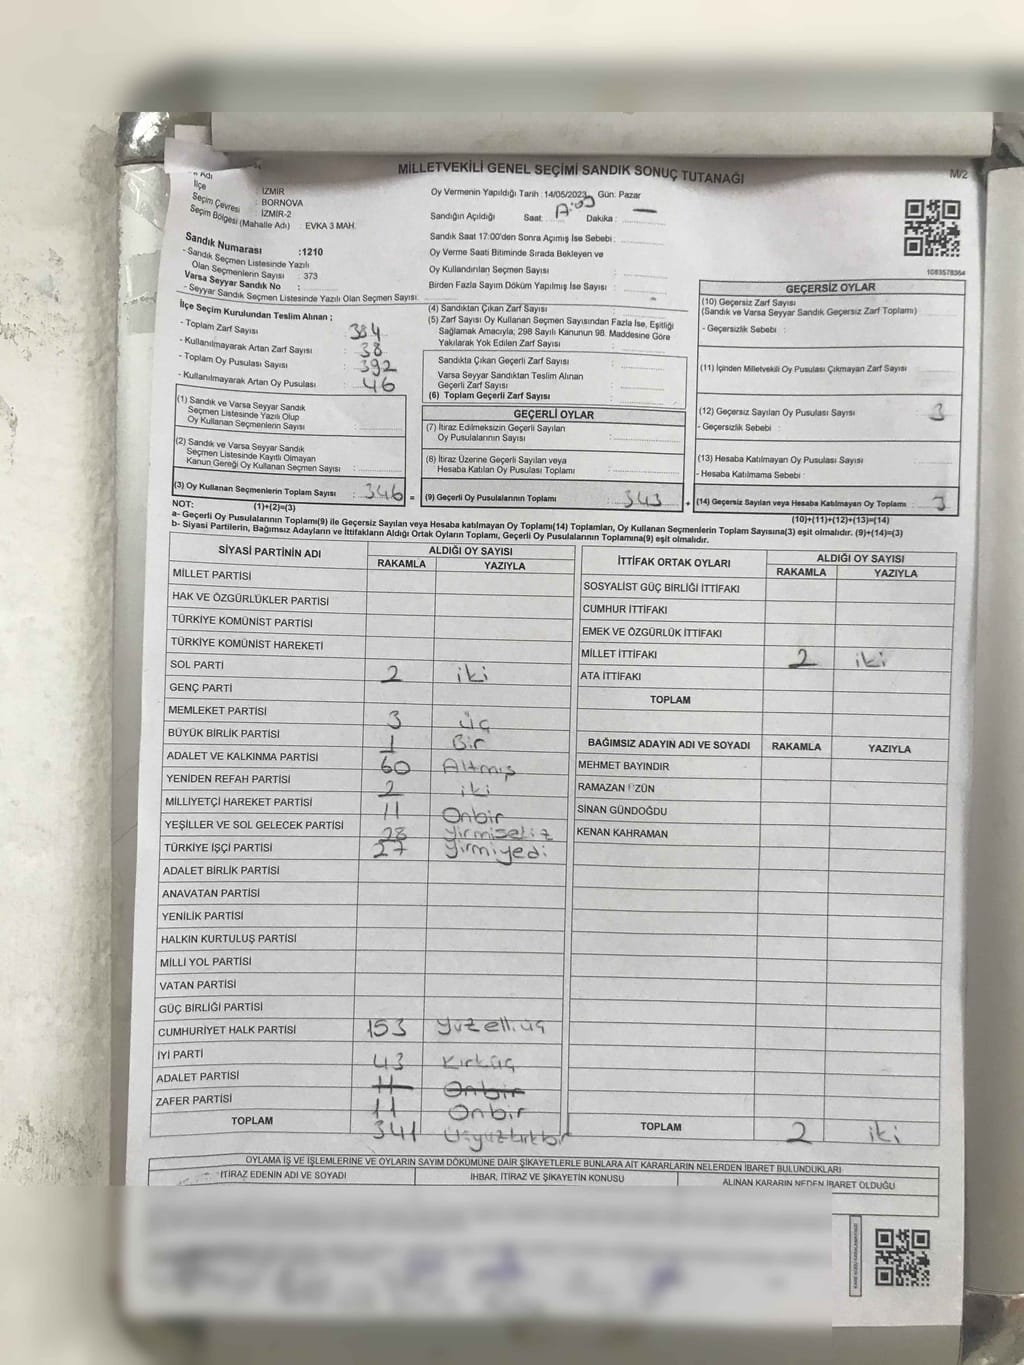 MİLLETVEKİLİ GENEL SEÇİMİ SANDIK SONUÇ TUTANAĞI
M/2
Adı : İZMİR
İlçe : BORNOVA
Seçim Çevresi : İZMİR-2
Seçim Bölgesi (Mahalle Adı) : EVKA 3 MAH.
Oy Vermenin Yapıldığı Tarih :14/05/2023 Gün: Pazar
Sandığın Açıldığı Saat: Dakika : —
Sandık Saat 17:00'den Sonra Açımış İse Sebebi :
Oy Verme Saati Bitiminde Sırada Bekleyen ve
Oy Kullandırılan Seçmen Sayısı
Birden Fazla Sayım Döküm Yapılmış İse Sayısı :
1083578364
Sandık Numarası :1210
- Sandık Seçmen Listesinde Yazılı
Olan Seçmenlerin Sayısı : 373
Varsa Seyyar Sandık No :
- Seyyar Sandık Seçmen Listesinde Yazılı Olan Seçmen Sayısı:
İlçe Seçim Kurulundan Teslim Alınan ;
- Toplam Zarf Sayısı : 384
- Kullanılmayarak Artan Zarf Sayısı : 38
- Toplam Oy Pusulası Sayısı : 392
- Kullanılmayarak Artan Oy Pusulası : 46
(1) Sandık ve Varsa Seyyar Sandık
Seçmen Listesinde Yazılı Olup
Oy Kullanan Seçmenlerin Sayısı :
(2) Sandık ve Varsa Seyyar Sandık
Seçmen Listesinde Kayıtlı Olmayan
Kanun Gereği Oy Kullanan Seçmen Sayısı :
(3) Oy Kullanan Seçmenlerin Toplam Sayısı : 346 =
(1)+(2)=(3)
(4) Sandıktan Çıkan Zarf Sayısı :
(5) Zarf Sayısı Oy Kullanan Seçmen Sayısından Fazla İse, Eşitliği
Sağlamak Amacıyla; 298 Sayılı Kanunun 98. Maddesine Göre
Yakılarak Yok Edilen Zarf Sayısı :
Sandıkta Çıkan Geçerli Zarf Sayısı :
Varsa Seyyar Sandıktan Teslim Alınan
Geçerli Zarf Sayısı :
(6) Toplam Geçerli Zarf Sayısı :
GEÇERLİ OYLAR
(7) İtiraz Edilmeksizin Geçerli Sayılan
Oy Pusulalarının Sayısı :
(8) İtiraz Üzerine Geçerli Sayılan veya
Hesaba Katılan Oy Pusulası Toplamı :
(9) Geçerli Oy Pusulalarının Toplamı : 343 +
GEÇERSİZ OYLAR
(10) Geçersiz Zarf Sayısı
(Sandık ve Varsa Seyyar Sandık Geçersiz Zarf Toplamı) :
- Geçersizlik Sebebi :
(11) İçinden Milletvekili Oy Pusulası Çıkmayan Zarf Sayısı :
(12) Geçersiz Sayılan Oy Pusulası Sayısı : 3
- Geçersizlik Sebebi :
(13) Hesaba Katılmayan Oy Pusulası Sayısı :
- Hesaba Katılmama Sebebi :
(14) Geçersiz Sayılan veya Hesaba Katılmayan Oy Toplamı : 3
(10)+(11)+(12)+(13)=(14)
NOT:
a- Geçerli Oy Pusulalarının Toplamı(9) ile Geçersiz Sayılan veya Hesaba katılmayan Oy Toplamı(14) Toplamları, Oy Kullanan Seçmenlerin Toplam Sayısına(3) eşit olmalıdır. (9)+(14)=(3)
b- Siyasi Partilerin, Bağımsız Adayların ve İttifakların Aldığı Ortak Oyların Toplamı, Geçerli Oy Pusulalarının Toplamına(9) eşit olmalıdır.
SİYASİ PARTİNİN ADI ALDIĞI OY SAYISI
RAKAMLA YAZIYLA
MİLLET PARTİSİ
HAK VE ÖZGÜRLÜKLER PARTİSİ
TÜRKİYE KOMÜNİST PARTİSİ
TÜRKİYE KOMÜNİST HAREKETİ
SOL PARTİ 2 iki
GENÇ PARTİ
MEMLEKET PARTİSİ 3 üç
BÜYÜK BİRLİK PARTİSİ 1 Bir
ADALET VE KALKINMA PARTİSİ 60 Altmış
YENİDEN REFAH PARTİSİ 2 iki
MİLLİYETÇİ HAREKET PARTİSİ 11 Onbir
YEŞİLLER VE SOL GELECEK PARTİSİ 28 yirmisekiz
TÜRKİYE İŞÇİ PARTİSİ 27 yirmiyedi
ADALET BİRLİK PARTİSİ
ANAVATAN PARTİSİ
YENİLİK PARTİSİ
HALKIN KURTULUŞ PARTİSİ
MİLLİ YOL PARTİSİ
VATAN PARTİSİ
GÜÇ BİRLİĞİ PARTİSİ
CUMHURİYET HALK PARTİSİ 153 yüzelliüç
İYİ PARTİ 43 Kırküç
ADALET PARTİSİ 11 Onbir
ZAFER PARTİSİ 11 Onbir
TOPLAM 341 Üçyüzkırkbir
İTTİFAK ORTAK OYLARI ALDIĞI OY SAYISI
RAKAMLA YAZIYLA
SOSYALİST GÜÇ BİRLİĞİ İTTİFAKI
CUMHUR İTTİFAKI
EMEK VE ÖZGÜRLÜK İTTİFAKI
MİLLET İTTİFAKI 2 iki
ATA İTTİFAKI
TOPLAM
BAĞIMSIZ ADAYIN ADI VE SOYADI RAKAMLA YAZIYLA
MEHMET BAYINDIR
RAMAZAN UZÜN
SİNAN GÜNDOĞDU
KENAN KAHRAMAN
TOPLAM 2 iki
OYLAMA İŞ VE İŞLEMLERİNE VE OYLARIN SAYIM DÖKÜMÜNE DAİR ŞİKAYETLERLE BUNLARA AİT KARARLARIN NELERDEN İBARET BULUNDUKLARI
İTİRAZ EDENİN ADI VE SOYADI İHBAR, İTİRAZ VE ŞİKAYETİN KONUSU ALINAN KARARIN NEDEN İBARET OLDUĞU